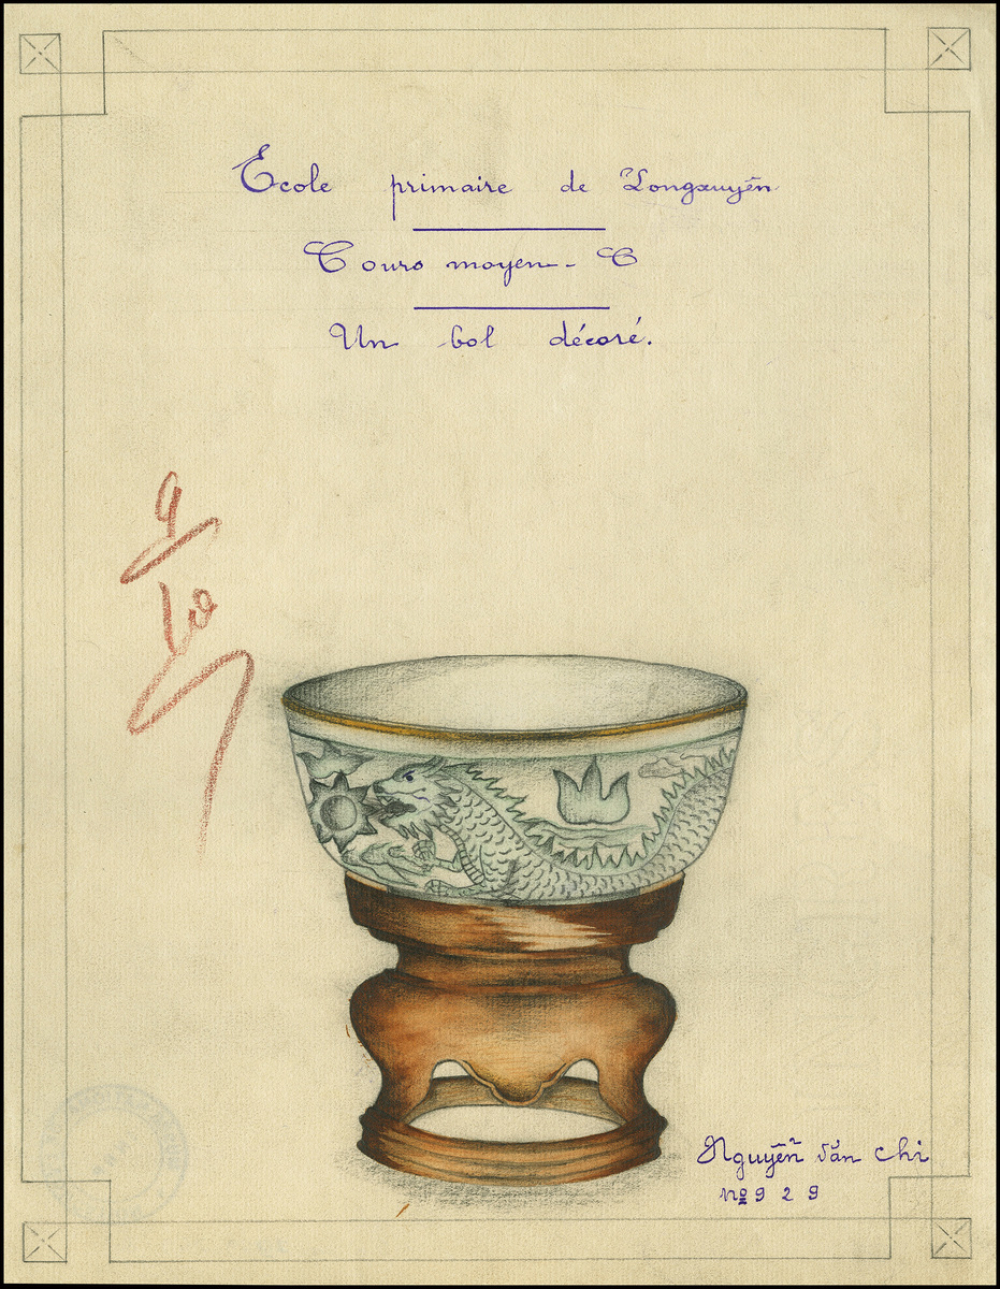 Ecole primaire de Longxuyên
Cours moyen - C
Un bol décoré.
9
10
Nguyễn văn Chi
nº 9 2 9